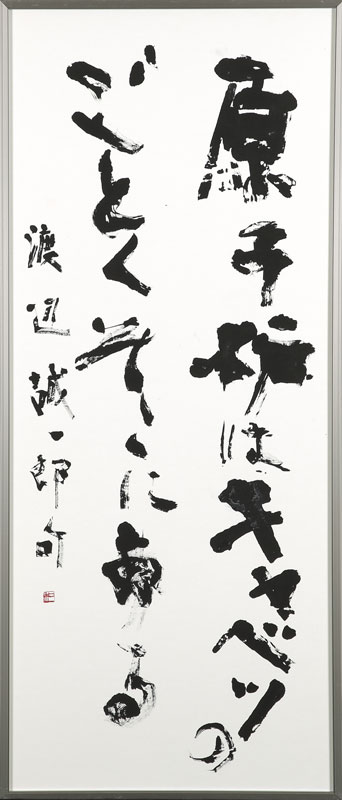 原子炉はキャベツの
ごとくそこに有る
渡辺誠一郎句